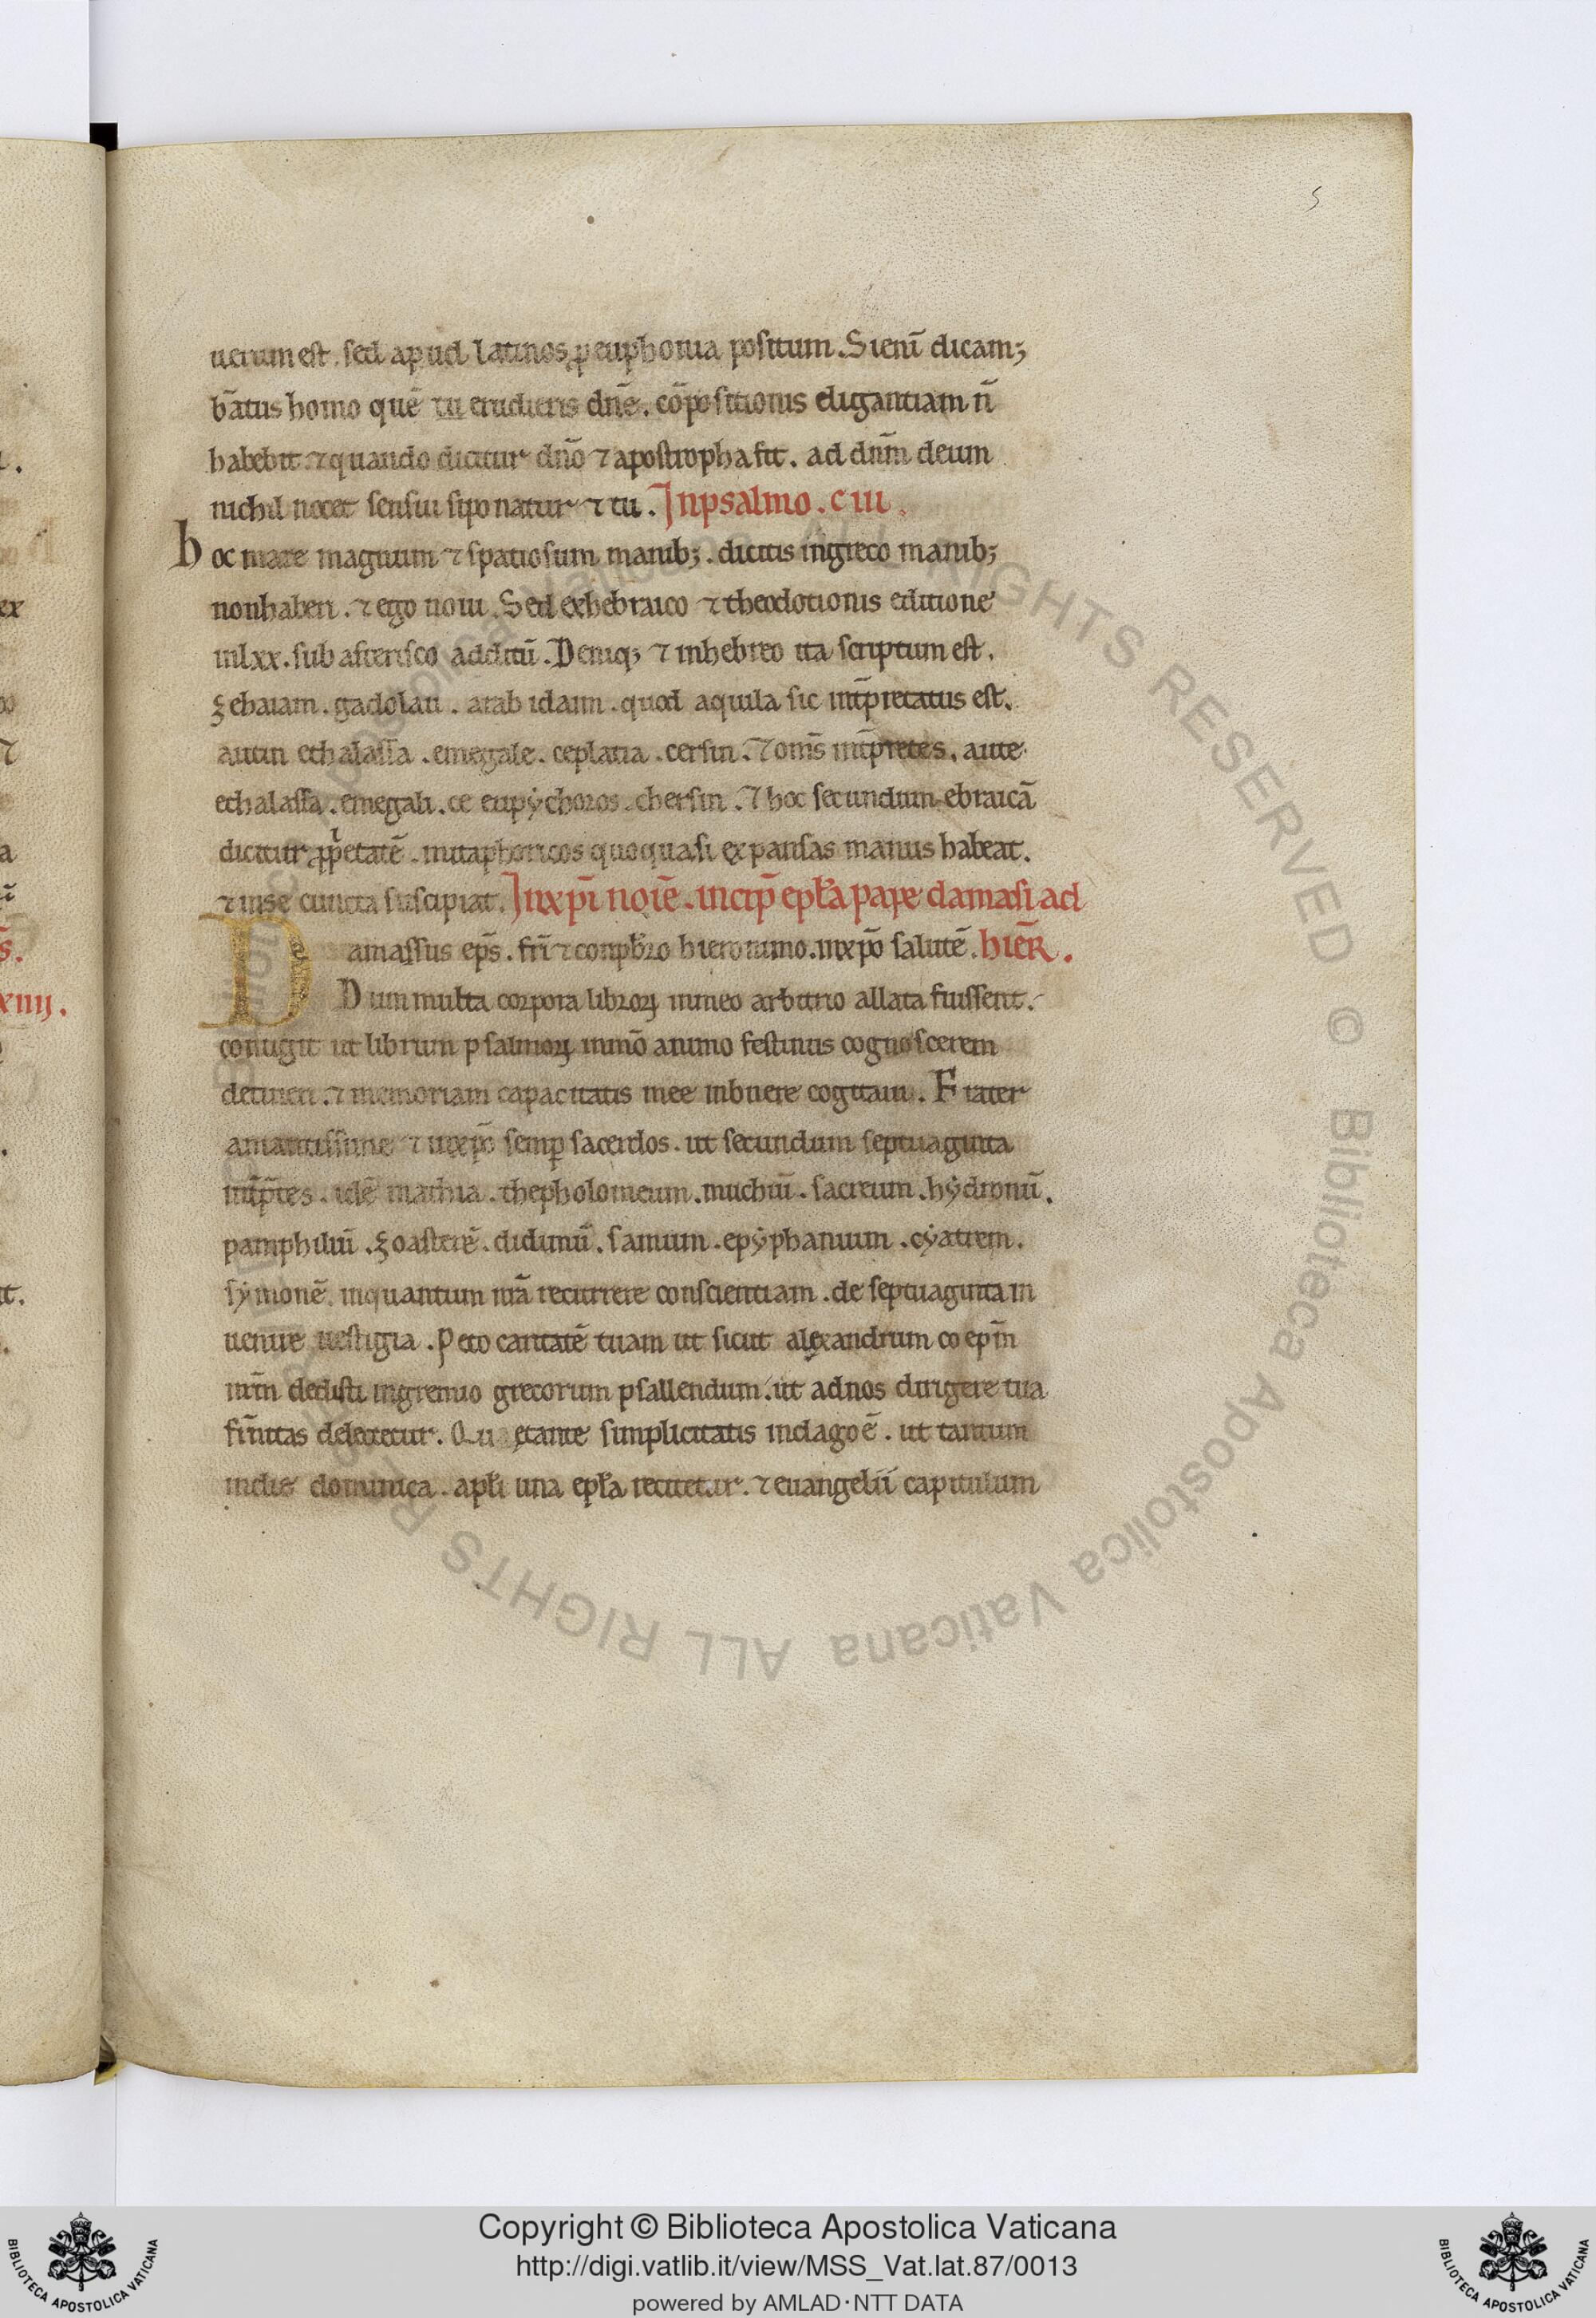 5
uerum est. sed apud latinos ꝓ euphonia positum. Si enī dicam;
bātus homo quē tu erudieris dn̄e. cōpositionis eligantiam n̄
habebit ⁊ quando dicitur dn̄o ⁊ apostropha fit. ad dn̄m deum
nichil nocet sensui si ponatur ⁊ tu. In psalmo. ciii.
hoc mare magnum ⁊ spatiosum manib;. dicitis in greco manib;
non haberi. ⁊ ego noui. Sed ex hebraico ⁊ theodotionis editione
in lxx. sub asterisco additū. Deniq; ⁊ in hebreo ita scriptum est.
zehaiam. gadolau. arab idaim. quod aquila sic int̄pretatus est.
autin ethalassa. emegale. ceplatia. cersin. ⁊ oms̄ int̄pretes. aute
ethalassa. emegali. ce eupẏchoros. chersin. ⁊ hoc secundum ebraicā
dicitur ꝓprietatē. mitaphoricos quo quasi expansas manus habeat.
⁊ in se cuncta suscipiat. In xp̄i noīe. incip̄ epłа pape damasi ad
Damassus ep̄s. fr̄i ⁊ conpb̄ro hieronimo. in xp̄o salutē. hiēR.
Dum multa corpora libroꝝ in meo arbitrio allata fuissent.
contigit ut librum psalmoꝝ in im̄o animo festinus cognoscerem
detineri. ⁊ memoriam capacitatis mee inbuere cogitaui. Frater
amantissime ⁊ in xp̄o semꝑ sacerdos. ut secundum septuaginta
int̄p̄tes. idē mathia. thepholomeum. muchiū. sacreum. hẏdronū.
pamphiliū. zoasterē. didimū. samum. epẏphanium. cẏatrem.
sẏmonē. in quantum nr̄ā recurrere conscientiam. de septuaginta in
uenire uestigia. Peto caritatē tuam ut sicut alexandrum coep̄m
nr̄m dedisti in gremio grecorum psallendum. ut ad nos dirigere tua
fr̄nitas delectetur. simplicitatis indagoē. ut tantum
in die dominica. apłi una epłа recitetur. ⁊ euangelii capitulum
Copyright © Biblioteca Apostolica Vaticana
http://digi.vatlib.it/view/MSS_Vat.lat.87/0013
powered by AMLAD·NTT DATA